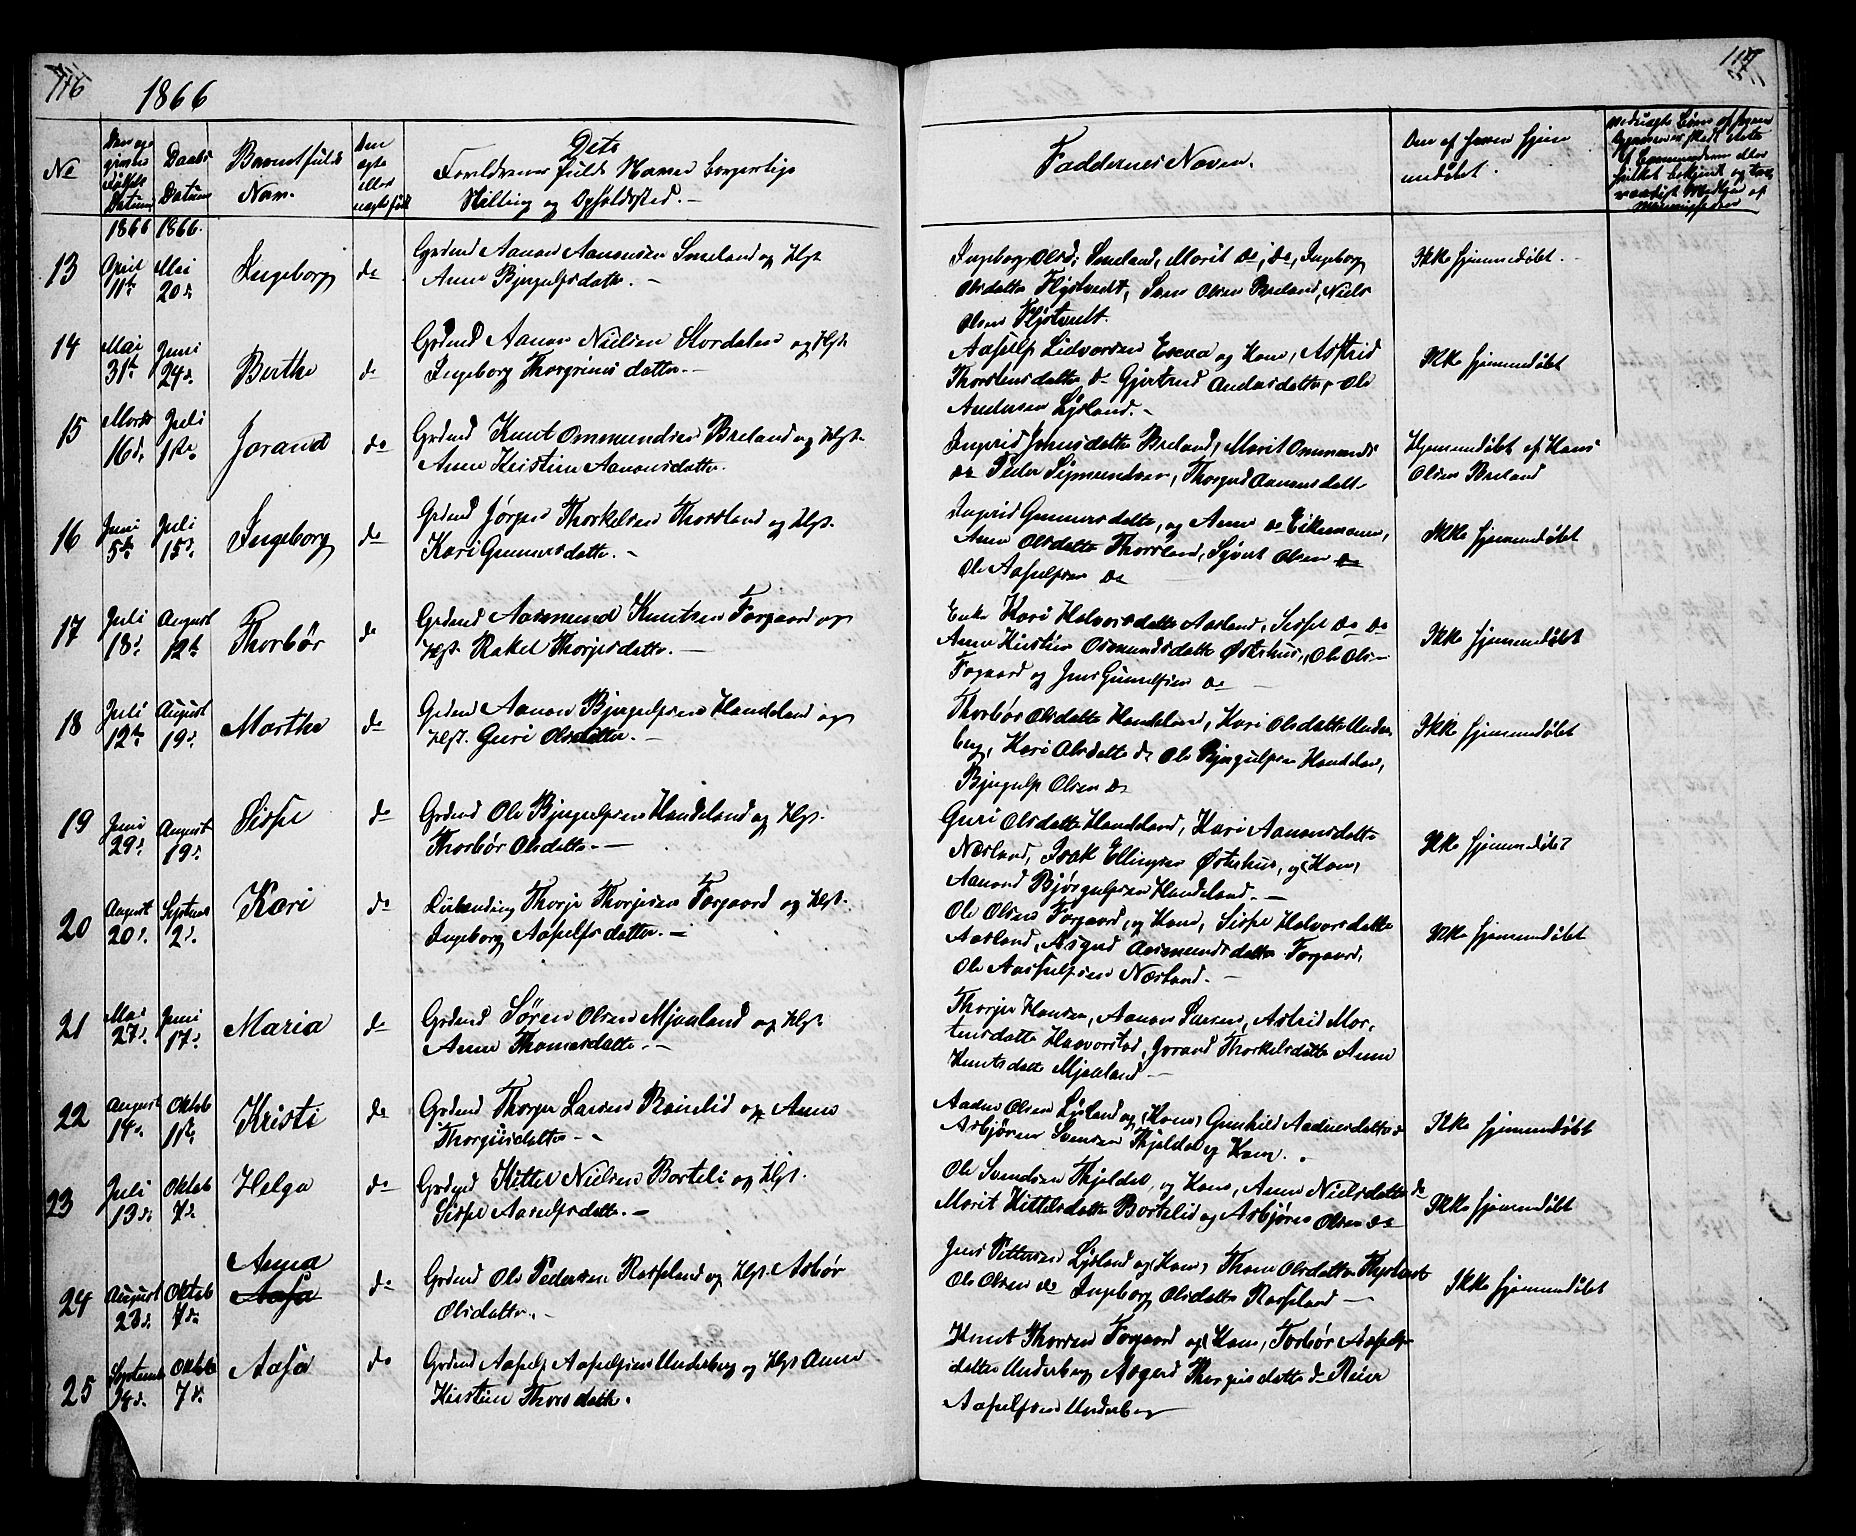 116
1866
117
No
Daabs
Datum
Barnet fulde
Navn.
Den
ægte
eller
Dets
Forældrenes fulde Navne borgerlige
Stilling og Opholdssted. -
Faddernes Navne.
Om af hvem hjemmedøbt.
1866 1866.
13 April 11te Mai 20de Ingeborg do
Grdmd Aanon Aanonsen Smeland og Hst
Anne Bjugulfsdatter. -
Ingeborg Olsd. Smeland, Marit do, do, Ingeborg
Olsdatter Fljotvedt, Olsen Breland, Niels
Olsen
Ikke hjemmedøbt. -
14 Mai 31te Juni 24de Berthe do
Grdmd Aanon Nielsen Stordalen og Hst
Ingeborg Thorgrimsdatter. -
Lidvorsen og Kone, Astrid
Thorstensdatter do Gjertrud Andersdatter, Ole
Andersen Lysland. -
Ikke hjemmedøbt
15 Marts 16de Juli 1ste Jorand do
Grdmd Knut Ommundsen Breland og Hst.
Anne Kristine Aanonsdatter.
Ingrid Jensdatter Breland, Marit Ommunds
do Peder Sigmundsen, Thorgerd Aanonsdatt
Hjemmedøbt af Hans
Olsen Breland
16 Juni 5te Juli 15de Ingeborg do
Grdmd Jørgen Thorkelsen Thorsland og Hst.
Kari Gunnersdatter. -
Ingrid Gunnersdatter, og Anne do Eikemoen,
Anne Olsdatter Thorsland, Sjøvat Olsen do
Ole Aasulfsen do
Ikke hjemmedøbt
17 Juli 18de August 12te Thorbør do
Grdmd Aasmund Knutsen Forgaard og
Hst. Rakel Thorjesdatter. -
Enke Kari Halvorsdatter Aasland, Sisse do do
Anne Kirstine Osmundsdatter Østerhus, Ole Ols
Forgaard og Jens Gunnulfsen do
Ikke hjemmedøbt
18 Juli 12te August 19de Marthe do
Grdmd Aanon Bjugulfsen Handeland og
Hst. Guri Olsdatter. -
Thorbør Olsdatter Handeland, Kari Olsdatter Under
berg, Kari Olsdatter do Ole Bjugulfsen Handelan,
Bjugulf Olsen do
Ikke hjemmedøbt
19 Juni 29de August 19de Sisse do
Grdmd Ole Bjugulfsen Handeland og Hst.
Thorbør Olsdatter. -
Guri Olsdatter Handeland, Kari Aanonsdatter
Næsland, Isak Ellingsen Østerhus, og Kone,
Aanond Bjørgulfsen Handeland. -
Ikke hjemmedøbt
20 August 20de Septmr 2de Kari do
Thorje Thorjesen Forgaard og Hst.
Ingeborg Aasulfsdatter. -
Ole Olsen Forgaard, og Kone, Sisse Halvorsdatter
Aasland, Asgerd Aasmundsdatter Forgaard,
Ole Aasulfsen Næsland. -
Ikke hjemmedøbt
21 Mai 27de Juni 17de Maria do
Grdmd Søren Olsen Mjaaland og Hst.
Anne Thomasdatter. -
Thorje Hansen, Aanon Larsen, Astrid Mor,
tensdatter Haaverstad, Jorand Thorkelsdatter Anne
Knutsdatter Mjaaland -
22 August 14de Oktob 11te Kristi do
Grdmd Thorger Larsen Roinelid og Anne
Thorgusdatter -
Aadne Olsen Lisland og Kone, Gunhild Aadnesdatter do
Asbjørn Svensen Kjeldal og Kone.
Ikke hjemmedøbt
23 Juli 13de Oktob 7de Helga do
Grdmd Kittel Nielsen Borteli og Hst.
Sisse Aasulfsdatter. -
Ole Svendsen Kjeldal og Kone, Anne Nielsdatter do
Marit Kittelsdatter Bortelid og Asbjørn Olsen do
Ikke hjemmedøbt
24 August 23de Oktob 7de Anna Aasa do
Grdmd Ole Pedersen Rosseland og Hst. Asbør
Olsdatter. -
Jens Pettersen Lysland og Kone, Thone Olsdatter
Ole Olsen do Ingeborg Olsdatter Rosseland -
Ikke hjemmedøbt
25 Septembr Oktob 7de Aasa do
Grdmd Aasulf Aasulfsen Underberg og Hst Anne
Kirstine Thorsdatter.
Knut Thorsen Forgaard og Kone, Torbør Aasulfs
datter Underberg Asgerd Thorgusdatter do Reier
Aasulfsen Underberg